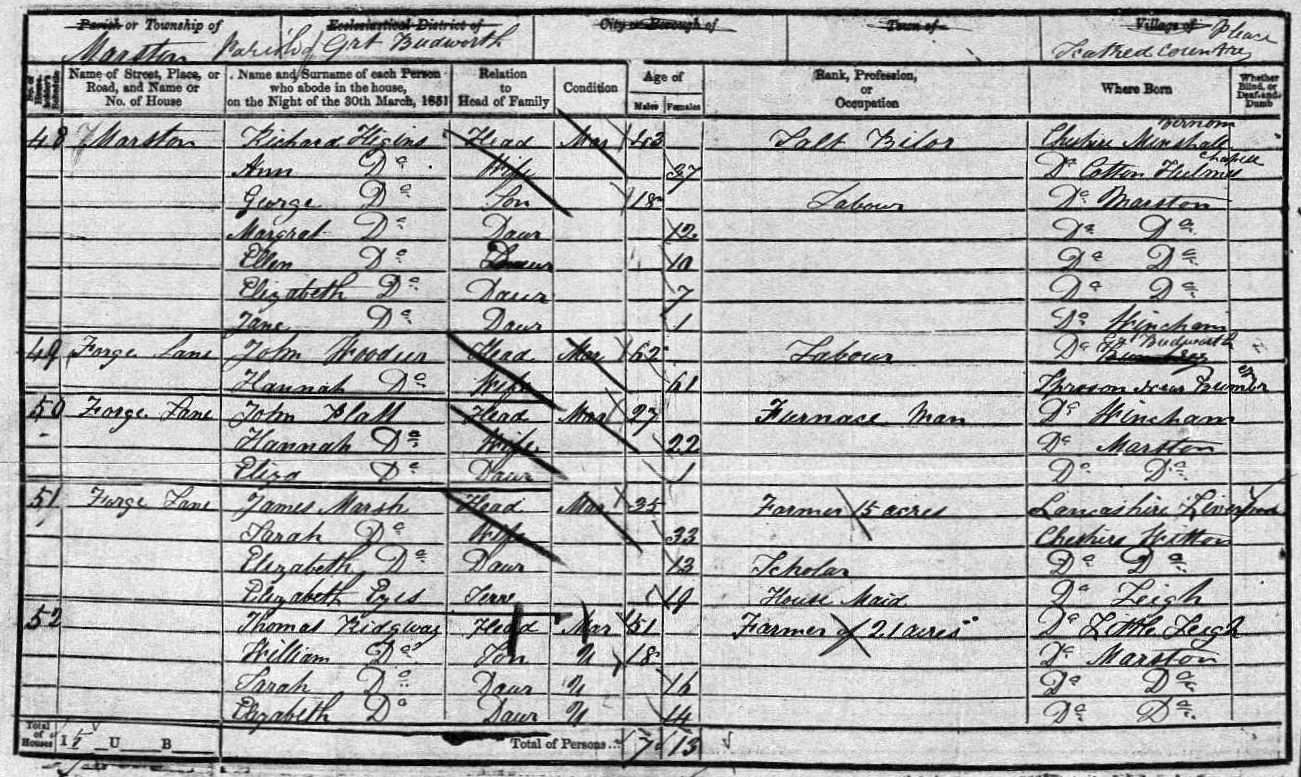 Parish or Township of Ecclesiastical District of City or Borough of Town of Village of
Marston Parish of Grt Budworth Please
Name of Street, Place, or Road, and Name or No. of House Name and Surname of each Person who abode in the house, on the Night of the 30th March, 1851 Relation to Head of Family Condition Age of Males Females Rank, Profession, or Occupation Where Born Whether Blind, or Deaf-and-Dumb
48 Marston Richard Higins Head Mar 43 Salt Bilor Cheshire Minshall Vernom
Ann Do Wife 37 Do Cotton Hulmes Chapell
George Do Son 18 Labour Do Marston
Margrat Do Daur 12 Do Do
Ellen Do Daur 10 Do Do
Elizabeth Do Daur 7 Do Do
Jane Do Daur 1 Do Wincham
49 Forge Lane John Woodier Head Mar 62 Labour Do Grt Budworth
Hannah Do Wife 61
50 Forge Lane John Platt Head Mar 27 Furnace Man Do Wincham
Hannah Do Wife 22 Do Marston
Eliza Do Daur 1 Do Do
51 Forge Lane James Marsh Head Mar 35 Farmer 15 acres Lancashire Liverpool
Sarah Do Wife 33 Cheshire Witton
Elizabeth Do Daur 13 Scholar Do Do
Elizabeth Eyes Serv 19 House Maid Do Leigh
52 Thomas Ridgway Head Mar 51 Farmer of 21 acres Do Little Leigh
William Do Son U 18 Do Marston
Sarah Do Daur U 16 Do Do
Elizabeth Do Daur U 14 Do Do
Total of Houses I 5 U B Total of Persons 7 13